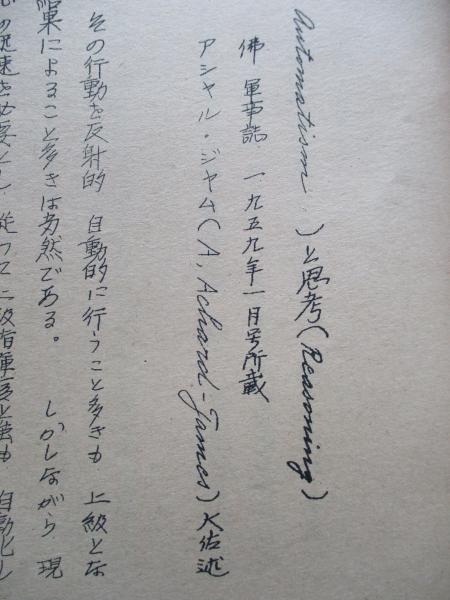 Automatism)と思考(Reasoning)
佛 軍事誌 一九五九年一月号所蔵
アシャル・ジャム(A, Achard-James)大佐述
その行動を反射的 自動的に行うこと多きも 上級とな
結果によること多きは当然である。 しかしながら 現
の迅速を必要とし 従って 上級指揮官と雖も 自動化し